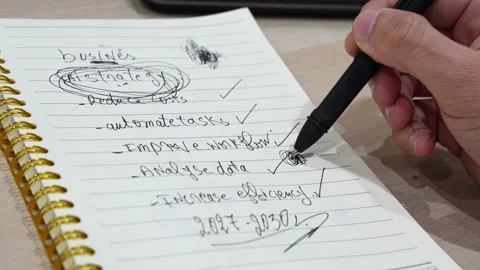 busines
strategy
- Reduce costs ✓
- automate tasks ✓
- Improve workflow ✓
- Analyse data ✓
- Increase efficiency ✓
2027-2030